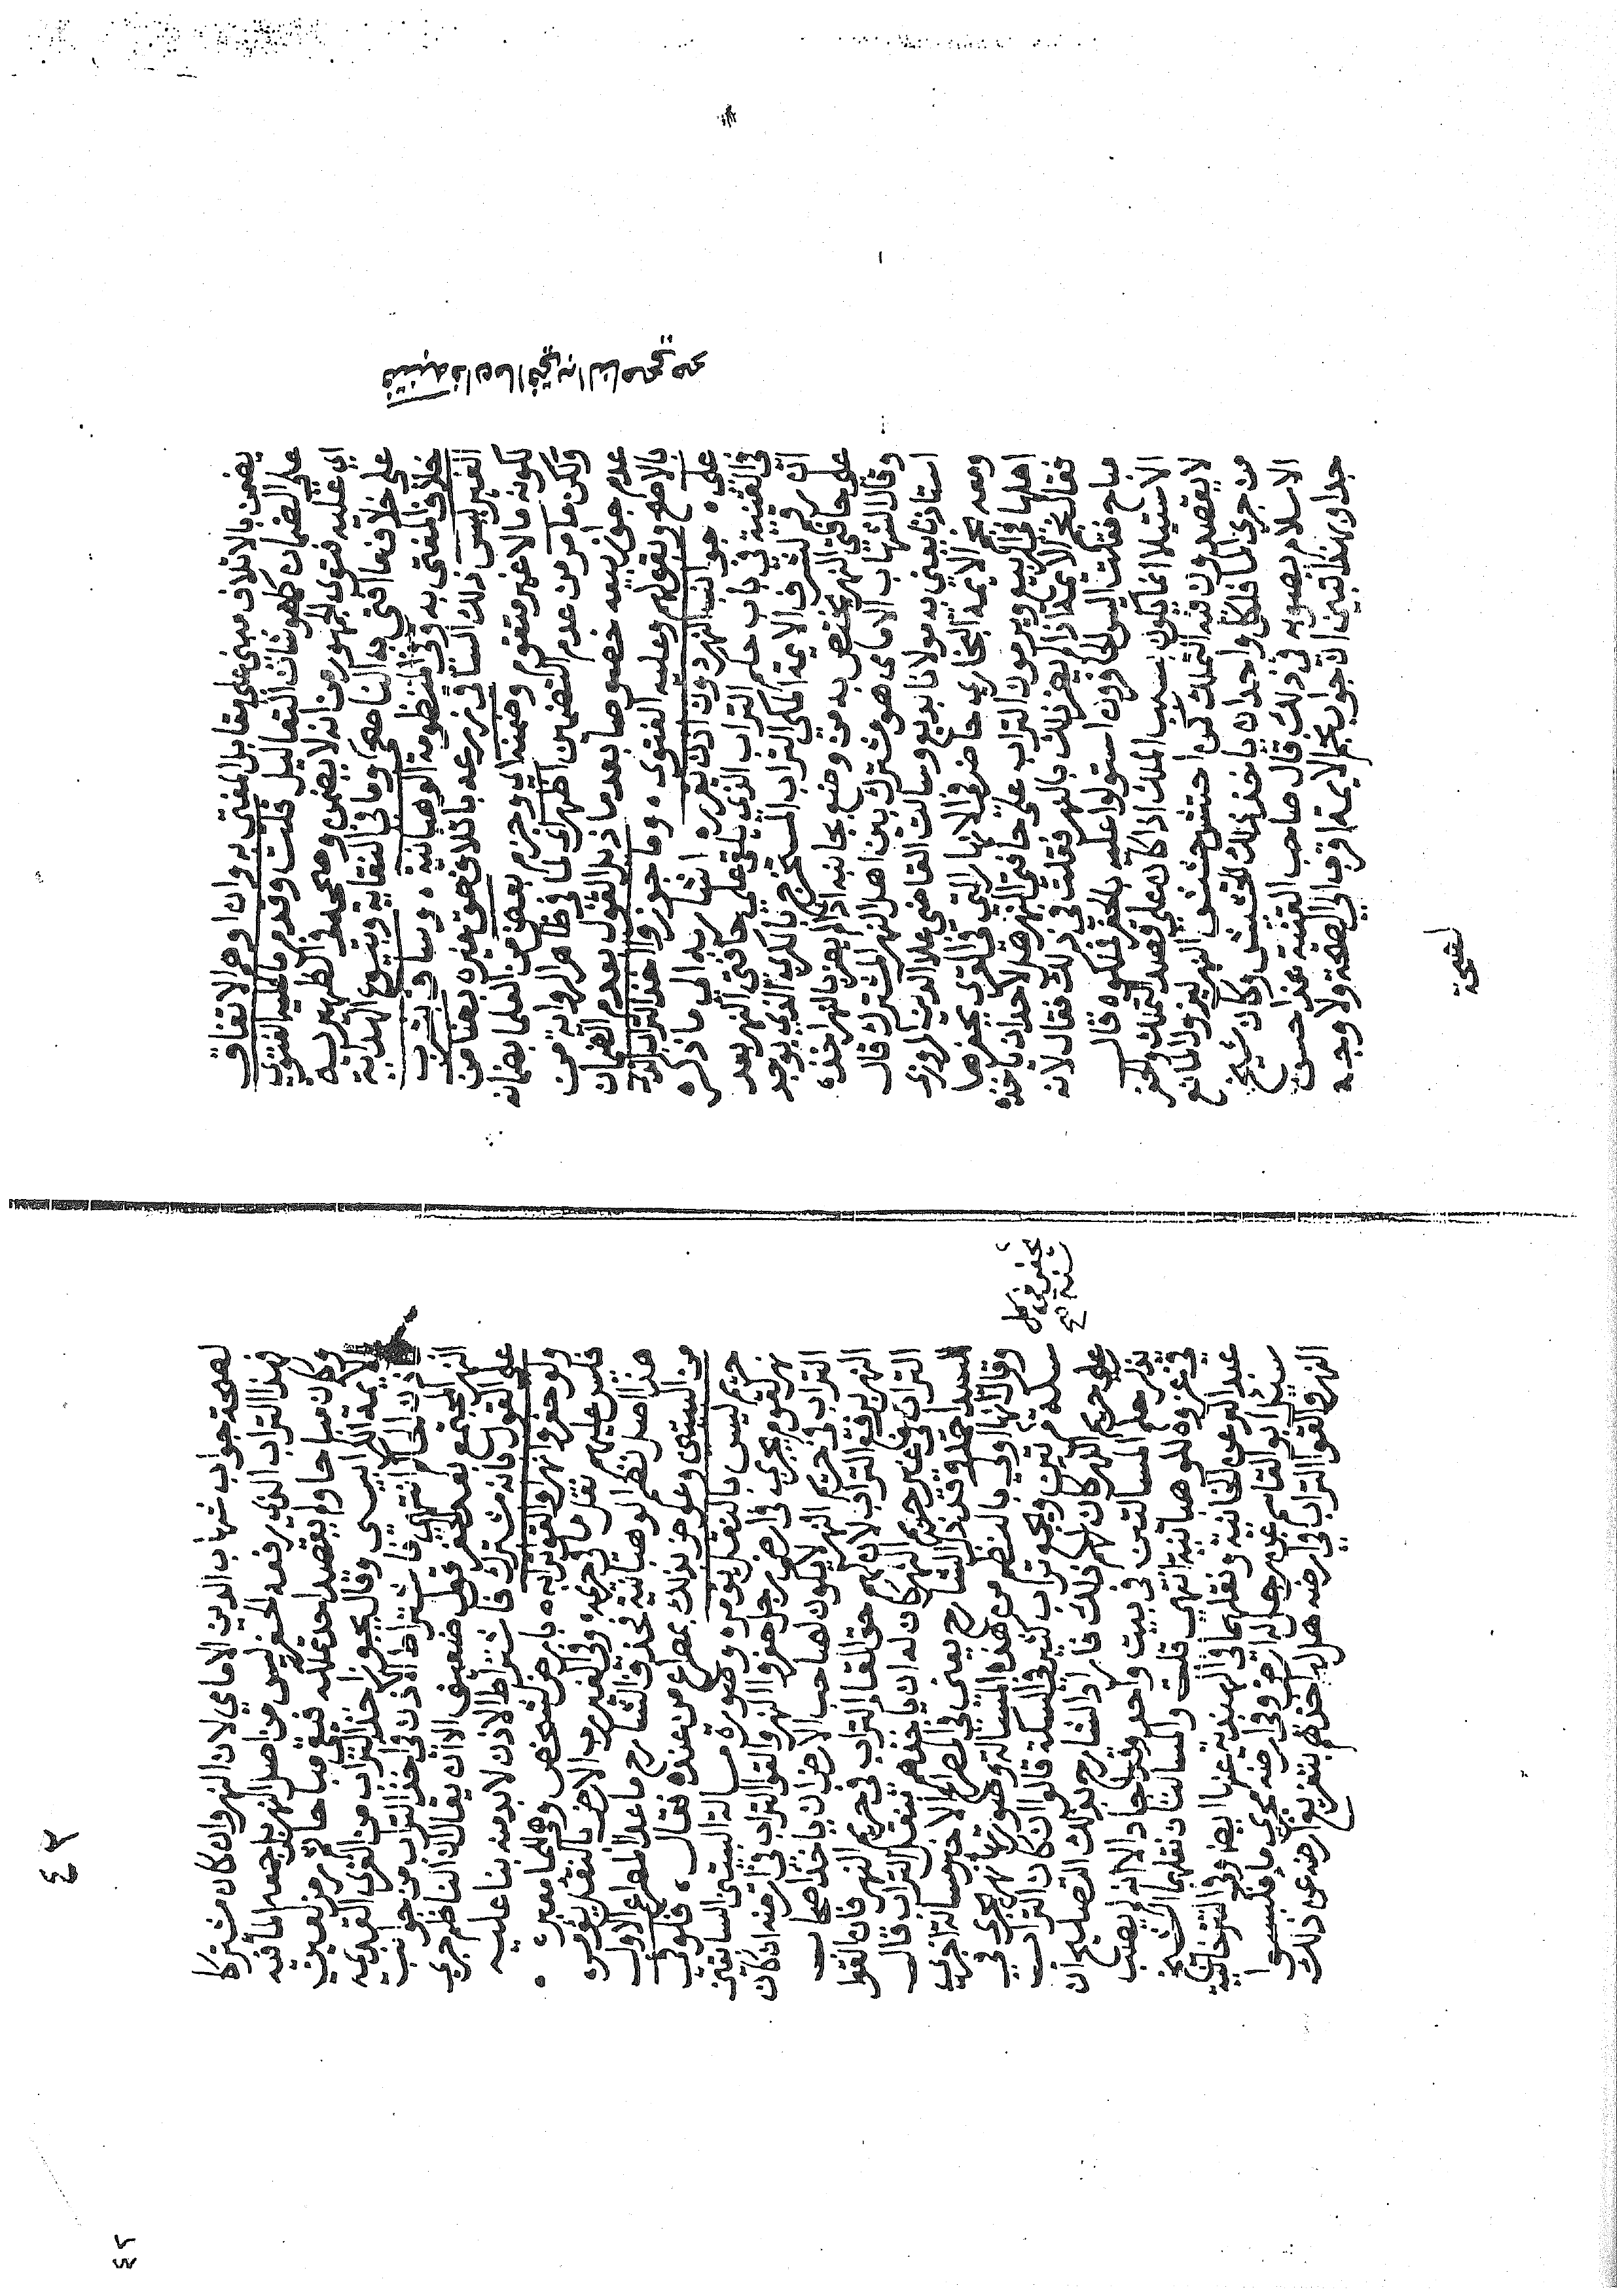 يضمن بالاتلاف مبني على مقابل المفتى به وان اوهم الاتفاق
على الضمان كما هو شان التعاليل قلت وقدم ما عليه الفتوى
اي عليه فتوى الجمهور من انه لا يضمن وصححه في الظهيرية
على خلاف ما افتى به الناصحي وما في النقاية وتبيع الهداية
خلاف المفتى به وفي المنظومة الوهبانية وساق بشرب
الغير ليس ذلك الساقي زرعه باتلاف حق غيره بعضا من
لكونه مالا غير متقوم وضمنه اي وجزم بعض من العلما بضمانه
ولكن ما مر من عدم التضمين اظهر اي لما في ظاهر الرواية من
عدم جواز بيعه خصوصا بعد ما ذيل القول بعدم الضمان
بالاصح وبقولهم وعليه الفتوى وما جوزوا اخذ التراب الذي
على جوانب النهر دون اذن يقرره اشار به الى ما ذكره
في القنية في باب حكم التراب الذي يلقى على حافتي النهر بعد
ان رقم لشرف الايمة المكي التراب المستخرج بالكري الذي يوجد
على حافتي النهر يختص به من وضع بجانبه اذا لم يضر بالنهر اخذه
وقال الشهاب الامامي هو مشترك بين اهل النهر المشترك قال
استاذنا يعني به مولانا بديع وسالت القاضي علا الدين المروزي
ومعه نجم الايمة البخاري حاضر في الانهار التي في القرى يحفرها
اهلها في الربيع ويرمون التراب على حافتي النهر هل لاحد ان ياخذه
فقال نجم الايمة اذا لم يضر ذلك بالنهر فقلت في ذلك فقال لانه
مباح فقلت اليس الحافرون استولوا عليه بالحفر فملكوه قال
الاستيلا انما يكون سبب الملك اذا كان على قصد التملك والحفر
لا يقصدون به التملك كمن احتش حشيش النهر ليزول المانع
من جري الما فلكل واحد ان ياخذ ذلك الحشيش وكان شيخ
الاسلام يصوبه في ذلك قال صاحب القنية هذا حسن
جدا وبهذا تبين ان جواب نجم الايمة اقرب الى الصحة ولا وجه
لصحة
لصحة جواب شهاب الدين الامامي لان النهر وان كان مشتركا
فهذا التراب الذي رفعه الحفر ليس من اصل النهر بل جمعه الما فيه
وكان مباحا ولم يقصد احد تملكه فبقي مباحا ثم رمز لعين
الايمة الكرابيسي وقال يجوز اخذ التراب من القرى القديمة
باذن الحاكم انتهى فاشتراط الاذن في اخذ التراب من جوانب
النهر المجتمع بعد الحفر قول ضعيف الا ان يقال ان الناظم جرى
على القول بانه مشترك فاشتراط الاذن لا بد منه بنا عليه
ولو حفروا نهرا والقوا ترابه بارض لشخص وهي للما معبر
فليس عليهم نقل ما في حريمه وفي الغير رب الارض بالنقل يؤمر
هذا اصل نظم الوهبانية فحذف الشارح ما عدا المصراع الاول
من البيتين وعوض بذلك بمصراع من عنده فقال فلو في
حريم ليس بالنقل يومر وصورة مسالة البيتين السابقين
نهر لقوم يجري في ارض رجل حفروا النهر والقوا التراب في ارضه ان كان
التراب في حريم النهر لا يكون لصاحب الارض ان ياخذ اصحاب
النهر برفع التراب لان لهم حق القاء التراب في حريم النهر فان القوا
التراب في غير حريم النهر كان له ان ياخذهم بنقل التراب قال
لسد احتلوا وقد ذكر الشارح يعني في المصراع الاخير مسالة اخرى
وقال انها اولى بالنظم من هذه المسالة وصورتها نهر يجري في
سكة مرتين ويجمع تراب كثير في السكة قالوا ان كان التراب
على حريم النهر كان لهم ذلك فاراد الشارح بذلك التصليح ان
يذكر حكم المسالتين في بيت واحد وقد اجاد الا انه لم يصب
في عزوه للوهبانية انتهى قلت والمسالتان نقلهما الشيخ
عبد البر عن الخانية ونقلهما في الهندية عنها ايضا وفي التترخانية
سئل ابو القاسم عن رجل له ارض وفي ارضه مجرى ما فكبسوا
النهر والقوا التراب في ارضه هل ياخذهم بتفريغ ارضه عن ذلك
يحفر في كل
سنة صح
٤٣
٤٢